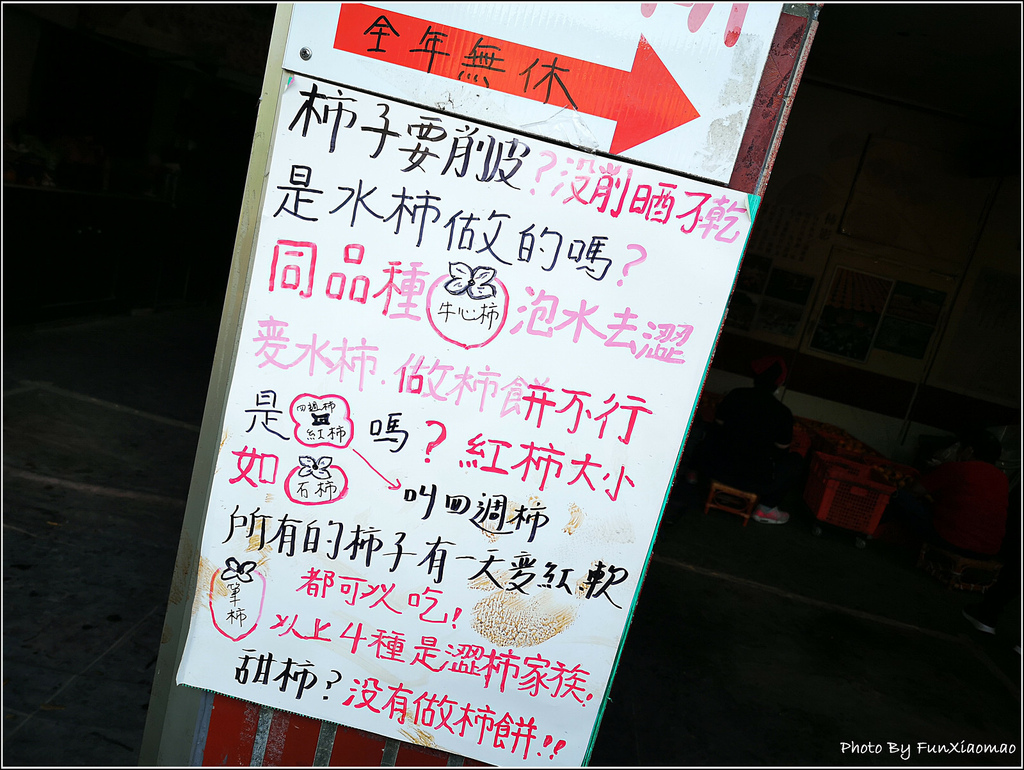 全年無休
柿子要削皮?没削晒不乾
是水柿做的嗎?
同品種 牛心柿 泡水去澀
変水柿.做柿餅并不行
是 四週柿 紅柿 嗎?紅柿大小
如 石柿 叫四週柿
所有的柿子有一天変紅軟
筆柿 都可以吃!
以上4種是澀柿家族.
甜柿?没有做柿餅!!
Photo By FunXiaomao